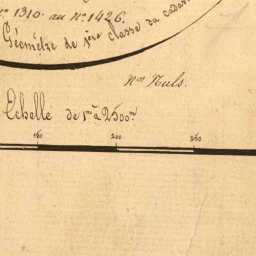 Nos 1310 au No 1426.
Géomètre de 1ère classe du cadas
Nos Nuls.
Echelle de 1m à 2500m
200